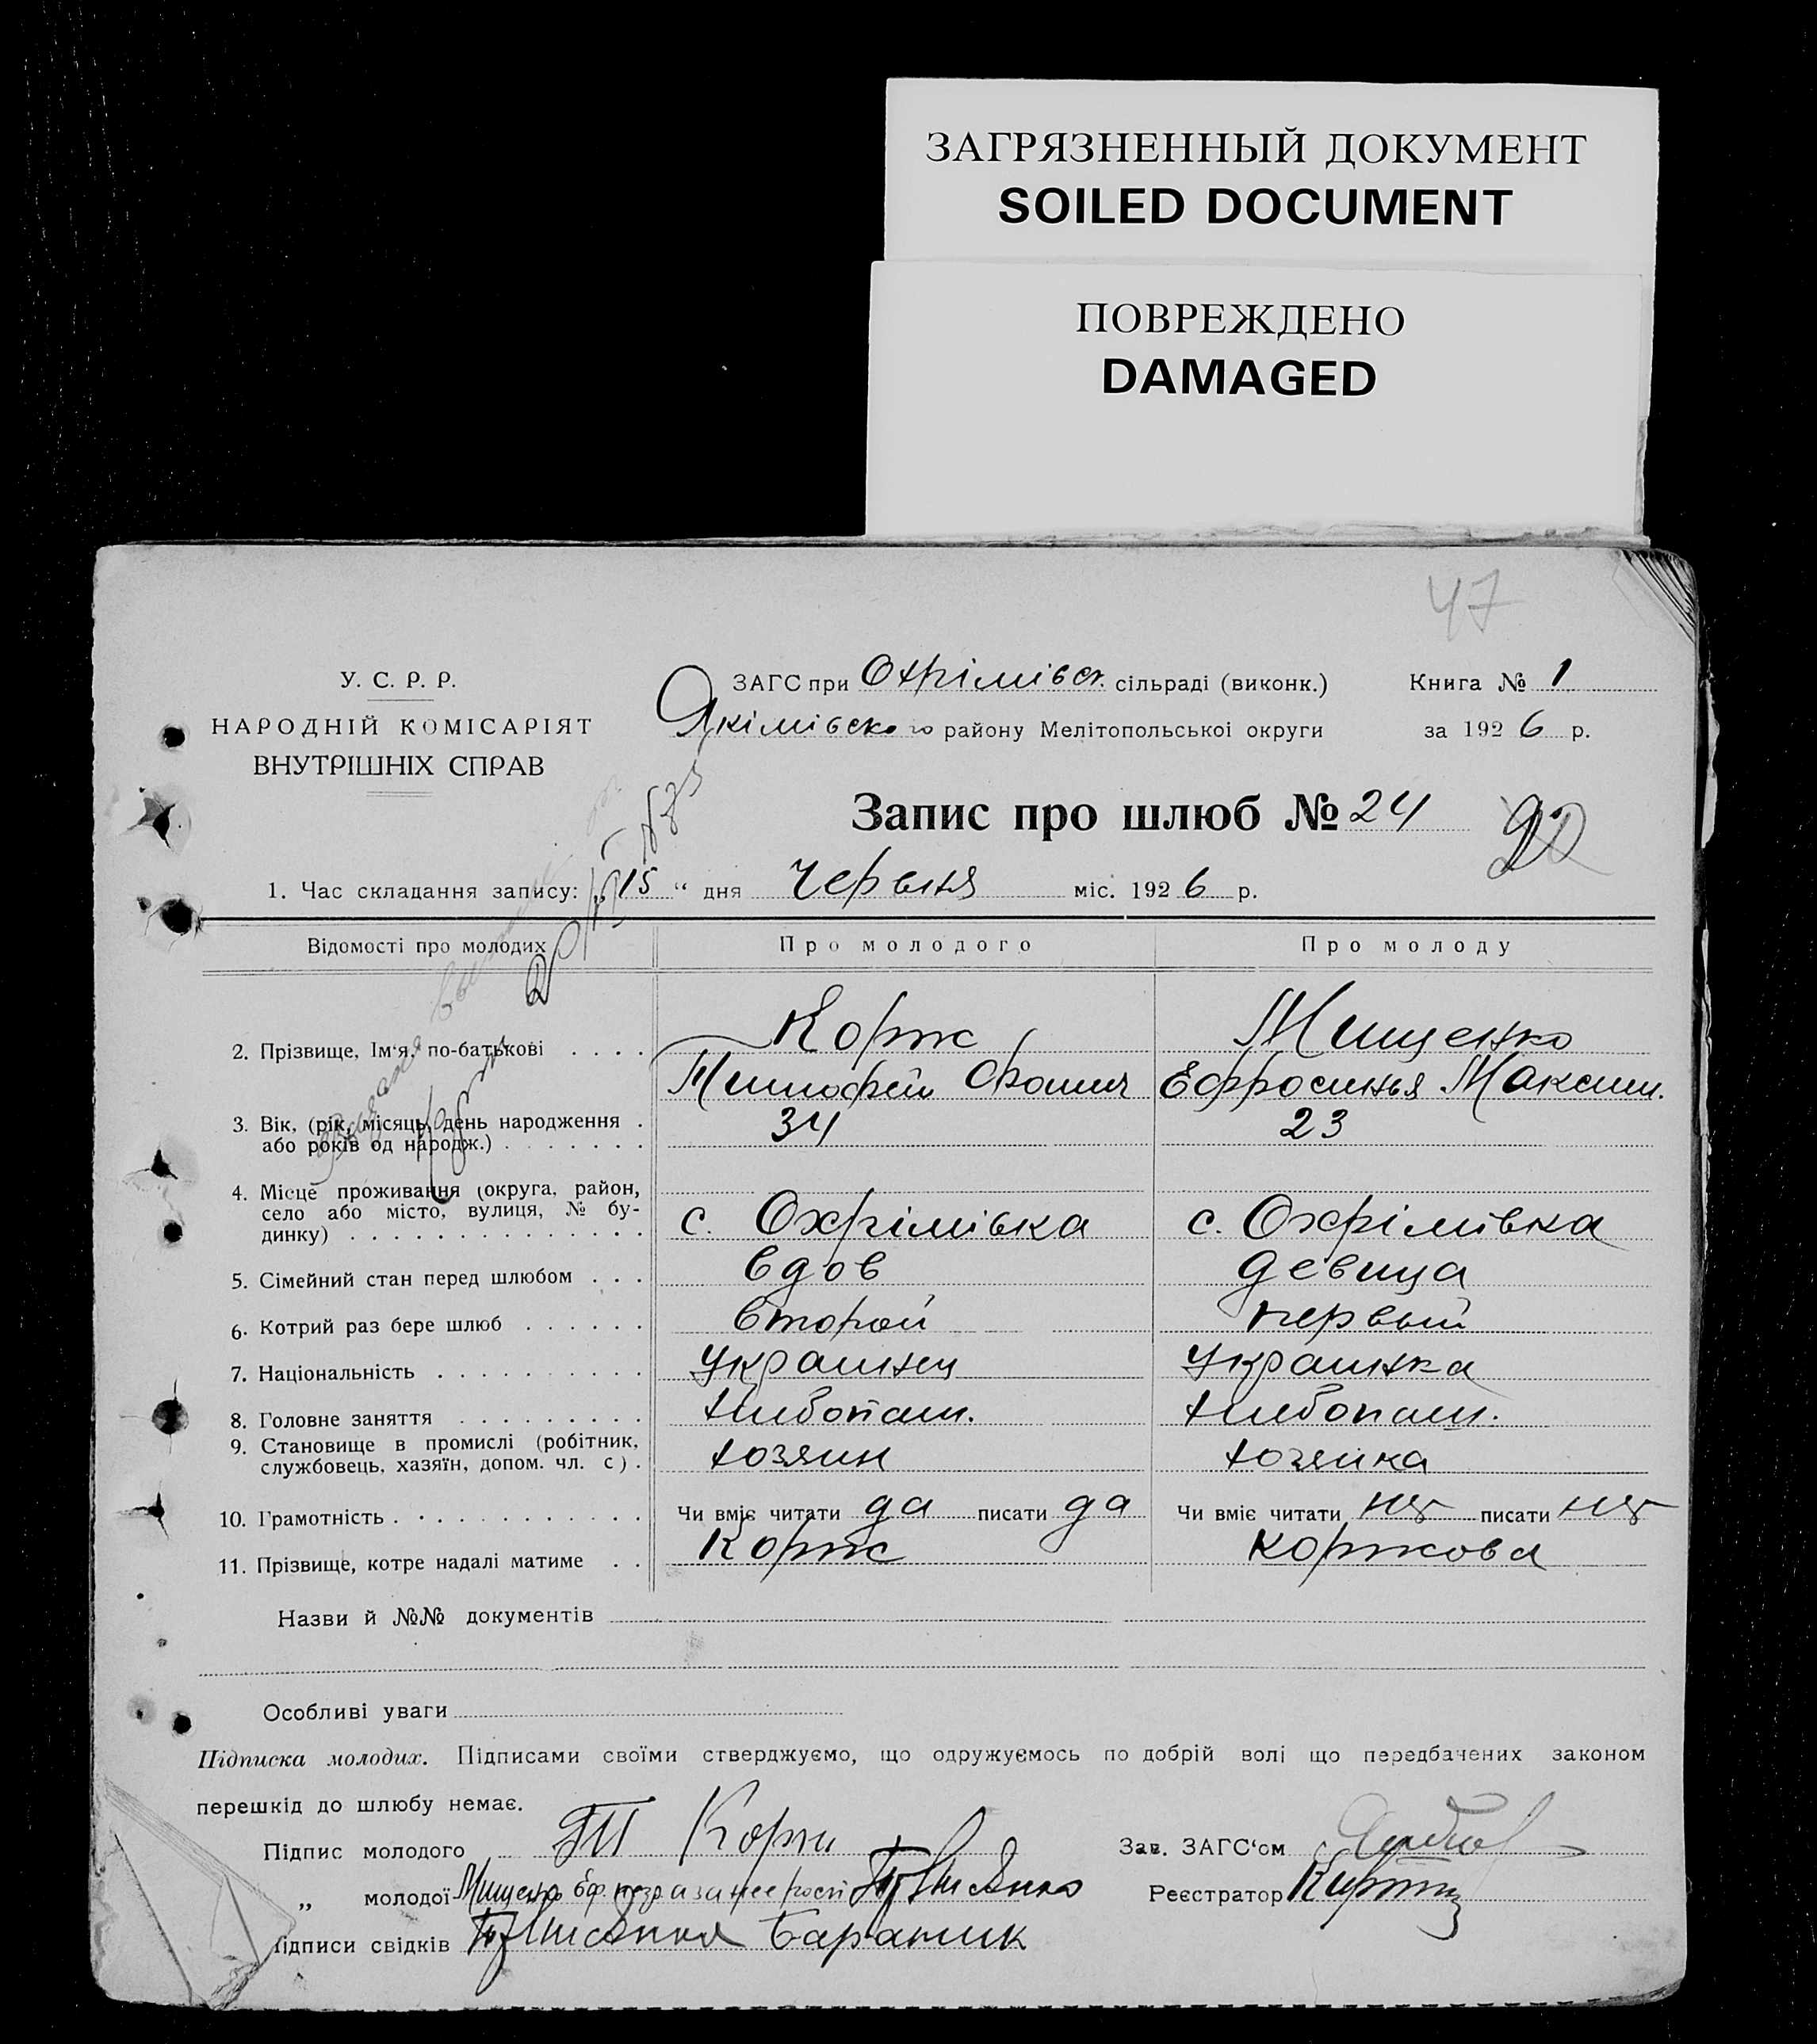 ЗАГРЯЗНЕННЫЙ ДОКУМЕНТ
SOILED DOCUMENT
ПОВРЕЖДЕНО
DAMAGED
47
У. С. Р. Р.
НАРОДНІЙ КОМІСАРІЯТ
ВНУТРІШНІХ СПРАВ
ЗАГС при Охрімівск. сільраді (виконк.)
Якімівского району Мелітопольської округи
Книга № 1
за 1926 р.
Запис про шлюб № 24
1. Час складання запису: „15“ дня червня міс. 1926 р.
Відомості про молодих Про молодого Про молоду
2. Прізвище, Ім'я, по-батькові . . . . Корж Мищенко
Тимофей Фомич Ефросинья Максим.
3. Вік, (рік, місяць, день народження . 34 23
або років од народж.) . . . . . . .
4. Місце проживання (округа, район,
село або місто, вулиця, № бу- с. Охрімівка с. Охрімівка
динку) . . . . . . . . . . . . . .
5. Сімейний стан перед шлюбом . . . вдов девица
6. Котрий раз бере шлюб . . . . . . второй первый
7. Національність . . . . . . . . . . Украинец Украинка
8. Головне заняття . . . . . . . . . хлебопаш. хлебопаш.
9. Становище в промислі (робітник, хозяин хозяйка
службовець, хазяїн, допом. чл. с) .
10. Грамотність . . . . . . . . . . . Чи вміє читати да писати да Чи вміє читати нет писати нет
11. Прізвище, котре надалі матиме . . Корж Коржова
Назви й №№ документів
Особливі уваги
Підписка молодих. Підписами своїми стверджуємо, що одружуємось по добрій волі що передбачених законом
перешкід до шлюбу немає.
Підпис молодого Т Корж Зав. ЗАГС'ом
„ молодої Мищенко Еф. негр. а за нее росп Реєстратор
Підписи свідків Баранник